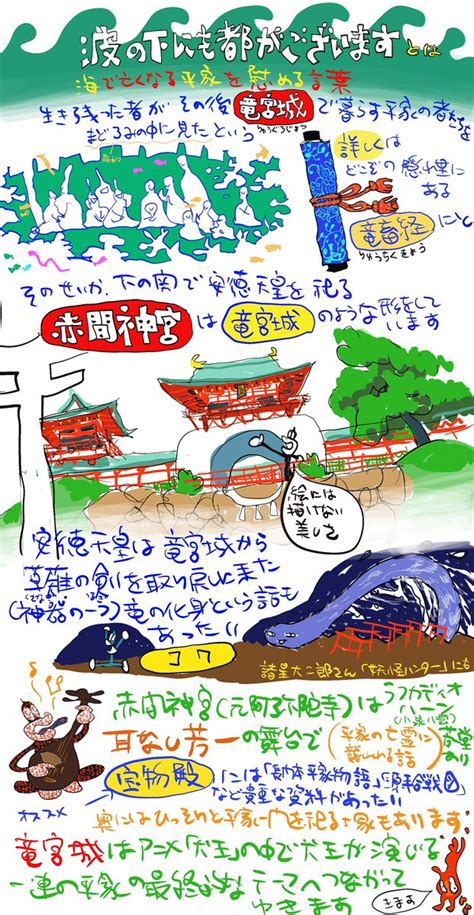 波の下にも都がございますとは
海で亡くなる平家を慰める言葉
生き残った者がその後竜宮城で暮らす平家の者たちを
りゅうぐうじょう
まどろみの中に見たという
詳しくは
どこぞの隠れ里に
ある
竜畜経にと
りゅうちくきょう
そのせいか、下の関で安徳天皇を祀る
赤間神宮は竜宮城のような形をして
います
絵には
描けない
美しさ
安徳天皇は竜宮城から
草薙の剣を取り戻しに来た
(神器の一つ)竜の化身という話も
あったい
コワ
諸星大二郎さん「妖怪ハンター」にも
赤間神宮(元阿弥陀寺)はラフカディオ
ハーン
(小泉八雲)
耳なし芳一の舞台で(平家の亡霊に
襲われる話)
芳一堂
あり
宝物殿には「長門本平家物語」「源平合戦図」
など貴重な資料があったい
オススメ
奥にはひっそりと平家一門を祀る塚もあります
竜宮城はアニメ「犬王」の中で犬王が演じる
一連の平家の最終的なテーマへつながって
ゆきます
きます